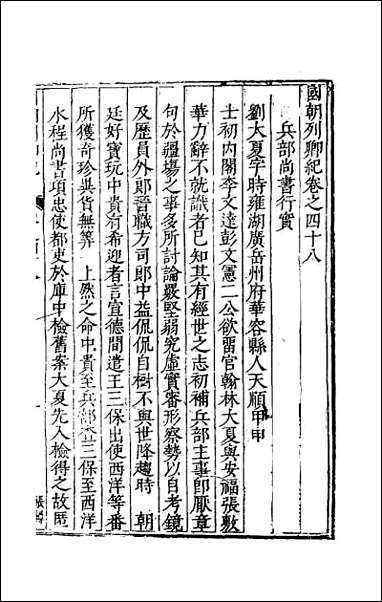 國朝列卿紀卷之四十八
兵部尚書行實
劉大夏字時雍湖廣岳州府華容縣人天順甲申
士初內閣李文達彭文憲二公欲留官翰林大夏與安福張敷
華力辭不就識者已知其有經世之志初補兵部主事即厭章
句於疆場之事多所討論嚴堅弱究虛實審形察勢以自考鏡
及歷員外郎晉職方司郎中益侃侃自樹不與世降趨時 朝
廷好寶玩中貴有希迎者言宣德間遣王三保出使西洋等番
所獲奇珍異貨無算 上然之命中貴至兵部查三保至西洋
水程尚書項忠使都吏於庫中檢舊案大夏先入檢得之故匿